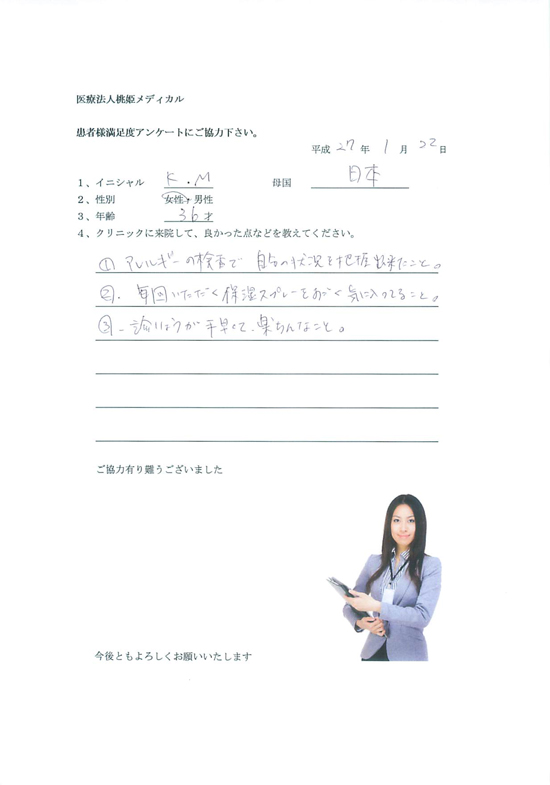 医療法人桃姫メディカル
患者様満足度アンケートにご協力下さい。
平成 27 年 1 月 22 日
1、イニシャル K・M 母国 日本
2、性別 女性・男性
3、年齢 36才
4、クリニックに来院して、良かった点などを教えてください。
① アレルギーの検査で 自分の状況を把握出来たこと。
②. 毎回いただく保湿スプレーをすごく気に入ってること。
③. 診りょうが手早くて、楽ちんなこと。
ご協力有り難うございました
今後ともよろしくお願いいたします